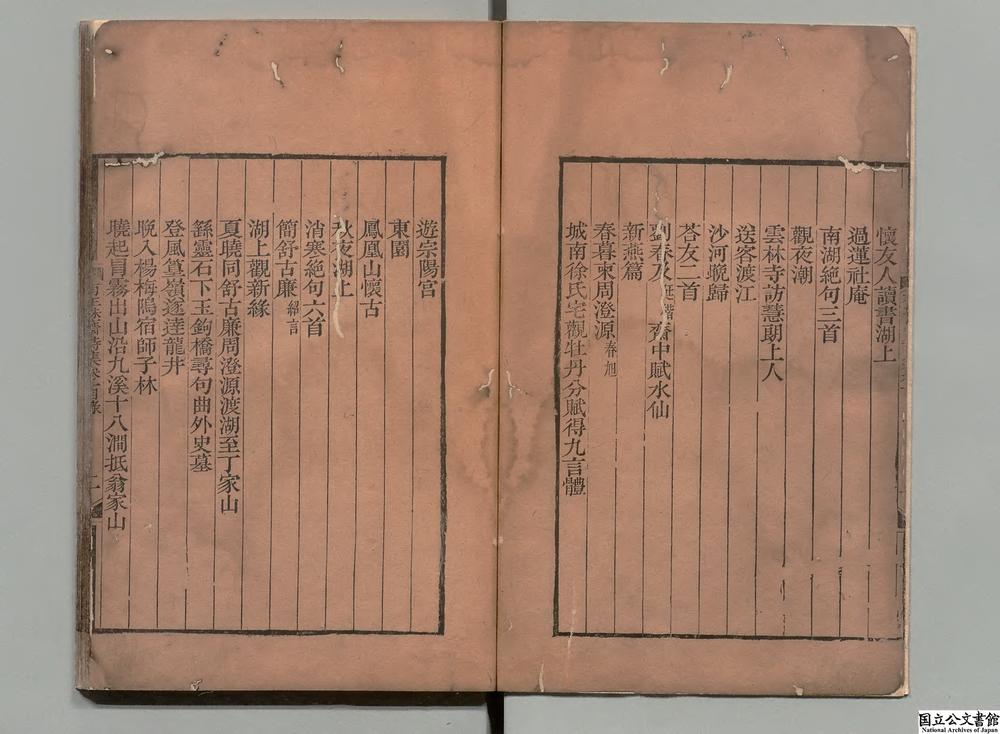 懷友人讀書湖上
過蓮社庵
南湖絶句三首
觀夜潮
雲林寺訪慧朗上人
送客渡江
沙河晚歸
荅友二首
劉春及廷階齋中賦水仙
新燕篇
春暮柬周澄源春旭
城南徐氏宅觀牡丹分賦得九言體
遊宗陽宮
東園
鳳凰山懷古
秋夜湖上
消寒絶句六首
簡舒古廉紹言
湖上觀新綠
夏曉同舒古廉周澄源渡湖至丁家山
繇靈石下玉鉤橋尋句曲外史墓
登風篁嶺遂達龍井
晚入楊梅隝宿師子林
曉起冒霧出山沿九溪十八澗抵翁家山
国立公文書館
National Archives of Japan